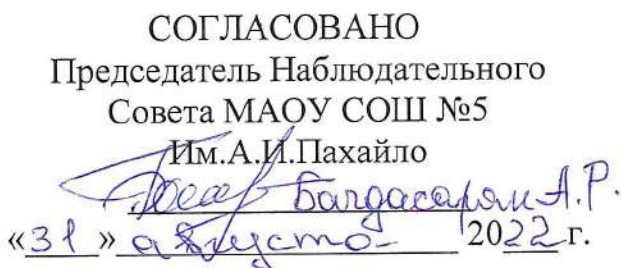 СОГЛАСОВАНО
Председатель Наблюдательного
Совета МАОУ СОШ №5
Им.А.И.Пахайло
Багдасарян А.Р.
«31» августа 2022 г.